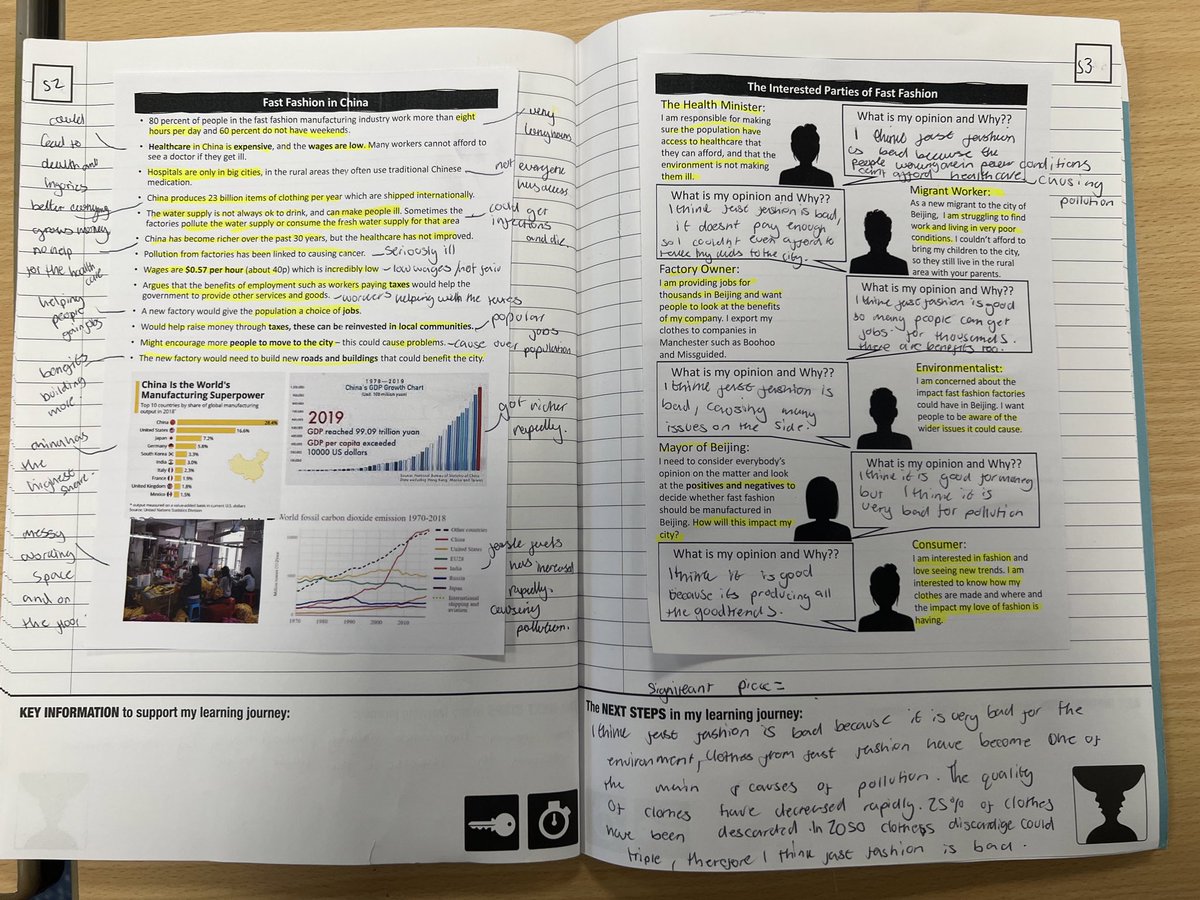 S2
could
lead to
death and
better everything
grows money
no help
for the health
care
helping
people
gain jobs
benefits
building
more
china has
the
highest
messy
working
space
and on
the floor.
Fast Fashion in China
• 80 percent of people in the fast fashion manufacturing industry work more than eight
hours per day and 60 percent do not have weekends.
• Healthcare in China is expensive, and the wages are low. Many workers cannot afford to
see a doctor if they get ill.
• Hospitals are only in big cities, in the rural areas they often use traditional Chinese
medication.
• China produces 23 billion items of clothing per year which are shipped internationally.
• The water supply is not always ok to drink, and can make people ill. Sometimes the
factories pollute the water supply or consume the fresh water supply for that area
• China has become richer over the past 30 years, but the healthcare has not improved.
• Pollution from factories has been linked to causing cancer.
• Wages are $0.57 per hour (about 40p) which is incredibly low
• Argues that the benefits of employment such as workers paying taxes would help the
government to provide other services and goods.
• A new factory would give the population a choice of jobs.
• Would help raise money through taxes, these can be reinvested in local communities.
• Might encourage more people to move to the city – this could cause problems.
• The new factory would need to build new roads and buildings that could benefit the city.
very
long hours
not everyone
has access
could get
infections
and die.
seriously ill
low wages/not fair
workers helping with the taxes
popular
jobs
cause over population
got richer
rapidly.
levels
has increased
rapidly.
causing
pollution.
China Is the World's
Manufacturing Superpower
Top 10 countries by share of global manufacturing
output in 2018*
China 28.4%
United States 16.6%
Japan 7.2%
Germany 5.8%
South Korea 3.3%
India 3.0%
Italy 2.3%
France 1.9%
United Kingdom 1.8%
Mexico 1.5%
* output measured on a value-added basis in current U.S. dollars
Source: United Nations Statistics Division
1978—2019
China's GDP Growth Chart
(Unit: 100 million yuan)
2019
GDP reached 99.09 trillion yuan
GDP per capita exceeded
10000 US dollars
World fossil carbon dioxide emission 1970-2018
Other countries
China
United States
EU28
India
Russia
Japan
International
shipping and
aviation
1970
1980
1990
2000
2010
KEY INFORMATION to support my learning journey:
S3
The Interested Parties of Fast Fashion
The Health Minister:
I am responsible for making
sure the population have
access to healthcare that
they can afford, and that the
environment is not making
them ill.
What is my opinion and Why??
I think fast fashion
is bad because the
people working in poor conditions
can't afford healthcare causing
pollution
Migrant Worker:
As a new migrant to the city of
Beijing, I am struggling to find
work and living in very poor
conditions. I couldn't afford to
bring my children to the city,
so they still live in the rural
area with your parents.
What is my opinion and Why??
I think fast fashion is bad,
it doesnt pay enough
so I couldn't even afford to
take my kids to the city.
Factory Owner:
I am providing jobs for
thousands in Beijing and want
people to look at the benefits
of my company. I export my
clothes to companies in
Manchester such as Boohoo
and Missguided.
What is my opinion and Why??
I think fast fashion is good
so many people can get
jobs for thousands.
there are benefits too.
Environmentalist:
I am concerned about the
impact fast fashion factories
could have in Beijing. I want
people to be aware of the
wider issues it could cause.
What is my opinion and Why??
I think fast fashion is
bad, causing many
issues on the side.
Mayor of Beijing:
I need to consider everybody's
opinion on the matter and look
at the positives and negatives to
decide whether fast fashion
should be manufactured in
Beijing. How will this impact my
city?
What is my opinion and Why??
I think it is good for money
but I think it is
very bad for pollution
Consumer:
I am interested in fashion and
love seeing new trends. I am
interested to know how my
clothes are made and where and
the impact my love of fashion is
having.
What is my opinion and Why??
I think it is good
because its producing all
the good trends.
Significant
The NEXT STEPS in my learning journey:
I think fast fashion is bad because it is very bad for the
environment, clothes from fast fashion have become one of
the main causes of pollution. The quality
of clothes have decreased rapidly. 25% of clothes
have been descarded. In 2050 clothess discardige could
triple, therefore I think fast fashion is bad.